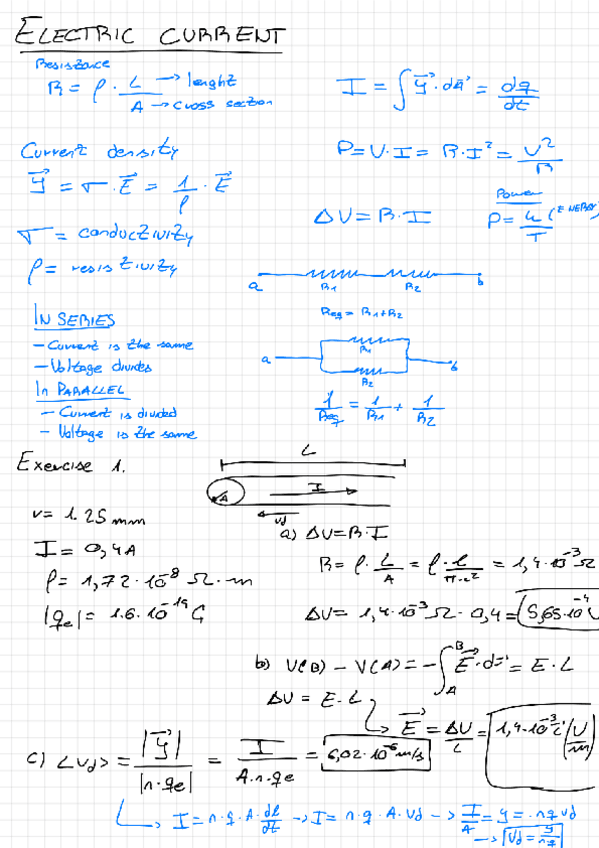 ELECTRIC CURRENT
Resistance
R = ρ · L/A → lenght
A → cross section
I = ∫ J⃗ · dA⃗ = dq/dt
Current density
J⃗ = σ · E⃗ = 1/ρ · E⃗
P = V · I = R · I² = V²/R
Power
ΔV = R · I
P = U/T (ENERGY)
σ = conductivity
ρ = resistivity
a R1 R2 b
Req = R1 + R2
IN SERIES
- Current is the same
- Voltage divides
a R1 R2 b
In PARALLEL
- Current is divided
- Voltage is the same
1/Req = 1/R1 + 1/R2
Exercise 1.
L
A I
vd
r = 1.25 mm
I = 0,4A
ρ = 1,72 · 10⁻⁸ Ω · m
|qe| = 1.6 · 10⁻¹⁹ C
a) ΔV = R · I
R = ρ · L/A = ρ · l/π·r² = 1,4 · 10⁻³ Ω
ΔV = 1,4 · 10⁻³ Ω · 0,4 = 5,65 · 10⁻⁴ V
b) V(B) - V(A) = -∫ᴬᴮ E⃗ · dl = E · L
ΔV = E · L
→ E⃗ = ΔV/L = 1,4 · 10⁻³ (V/m)
c) <vd> = |J⃗|/|n·qe| = I/A·n·qe = 6,02 · 10⁻⁶ m/s
→ I = n · q · A · dl/dt → I = n · q · A · vd → I/A = J = n q vd
→ vd = J/nq